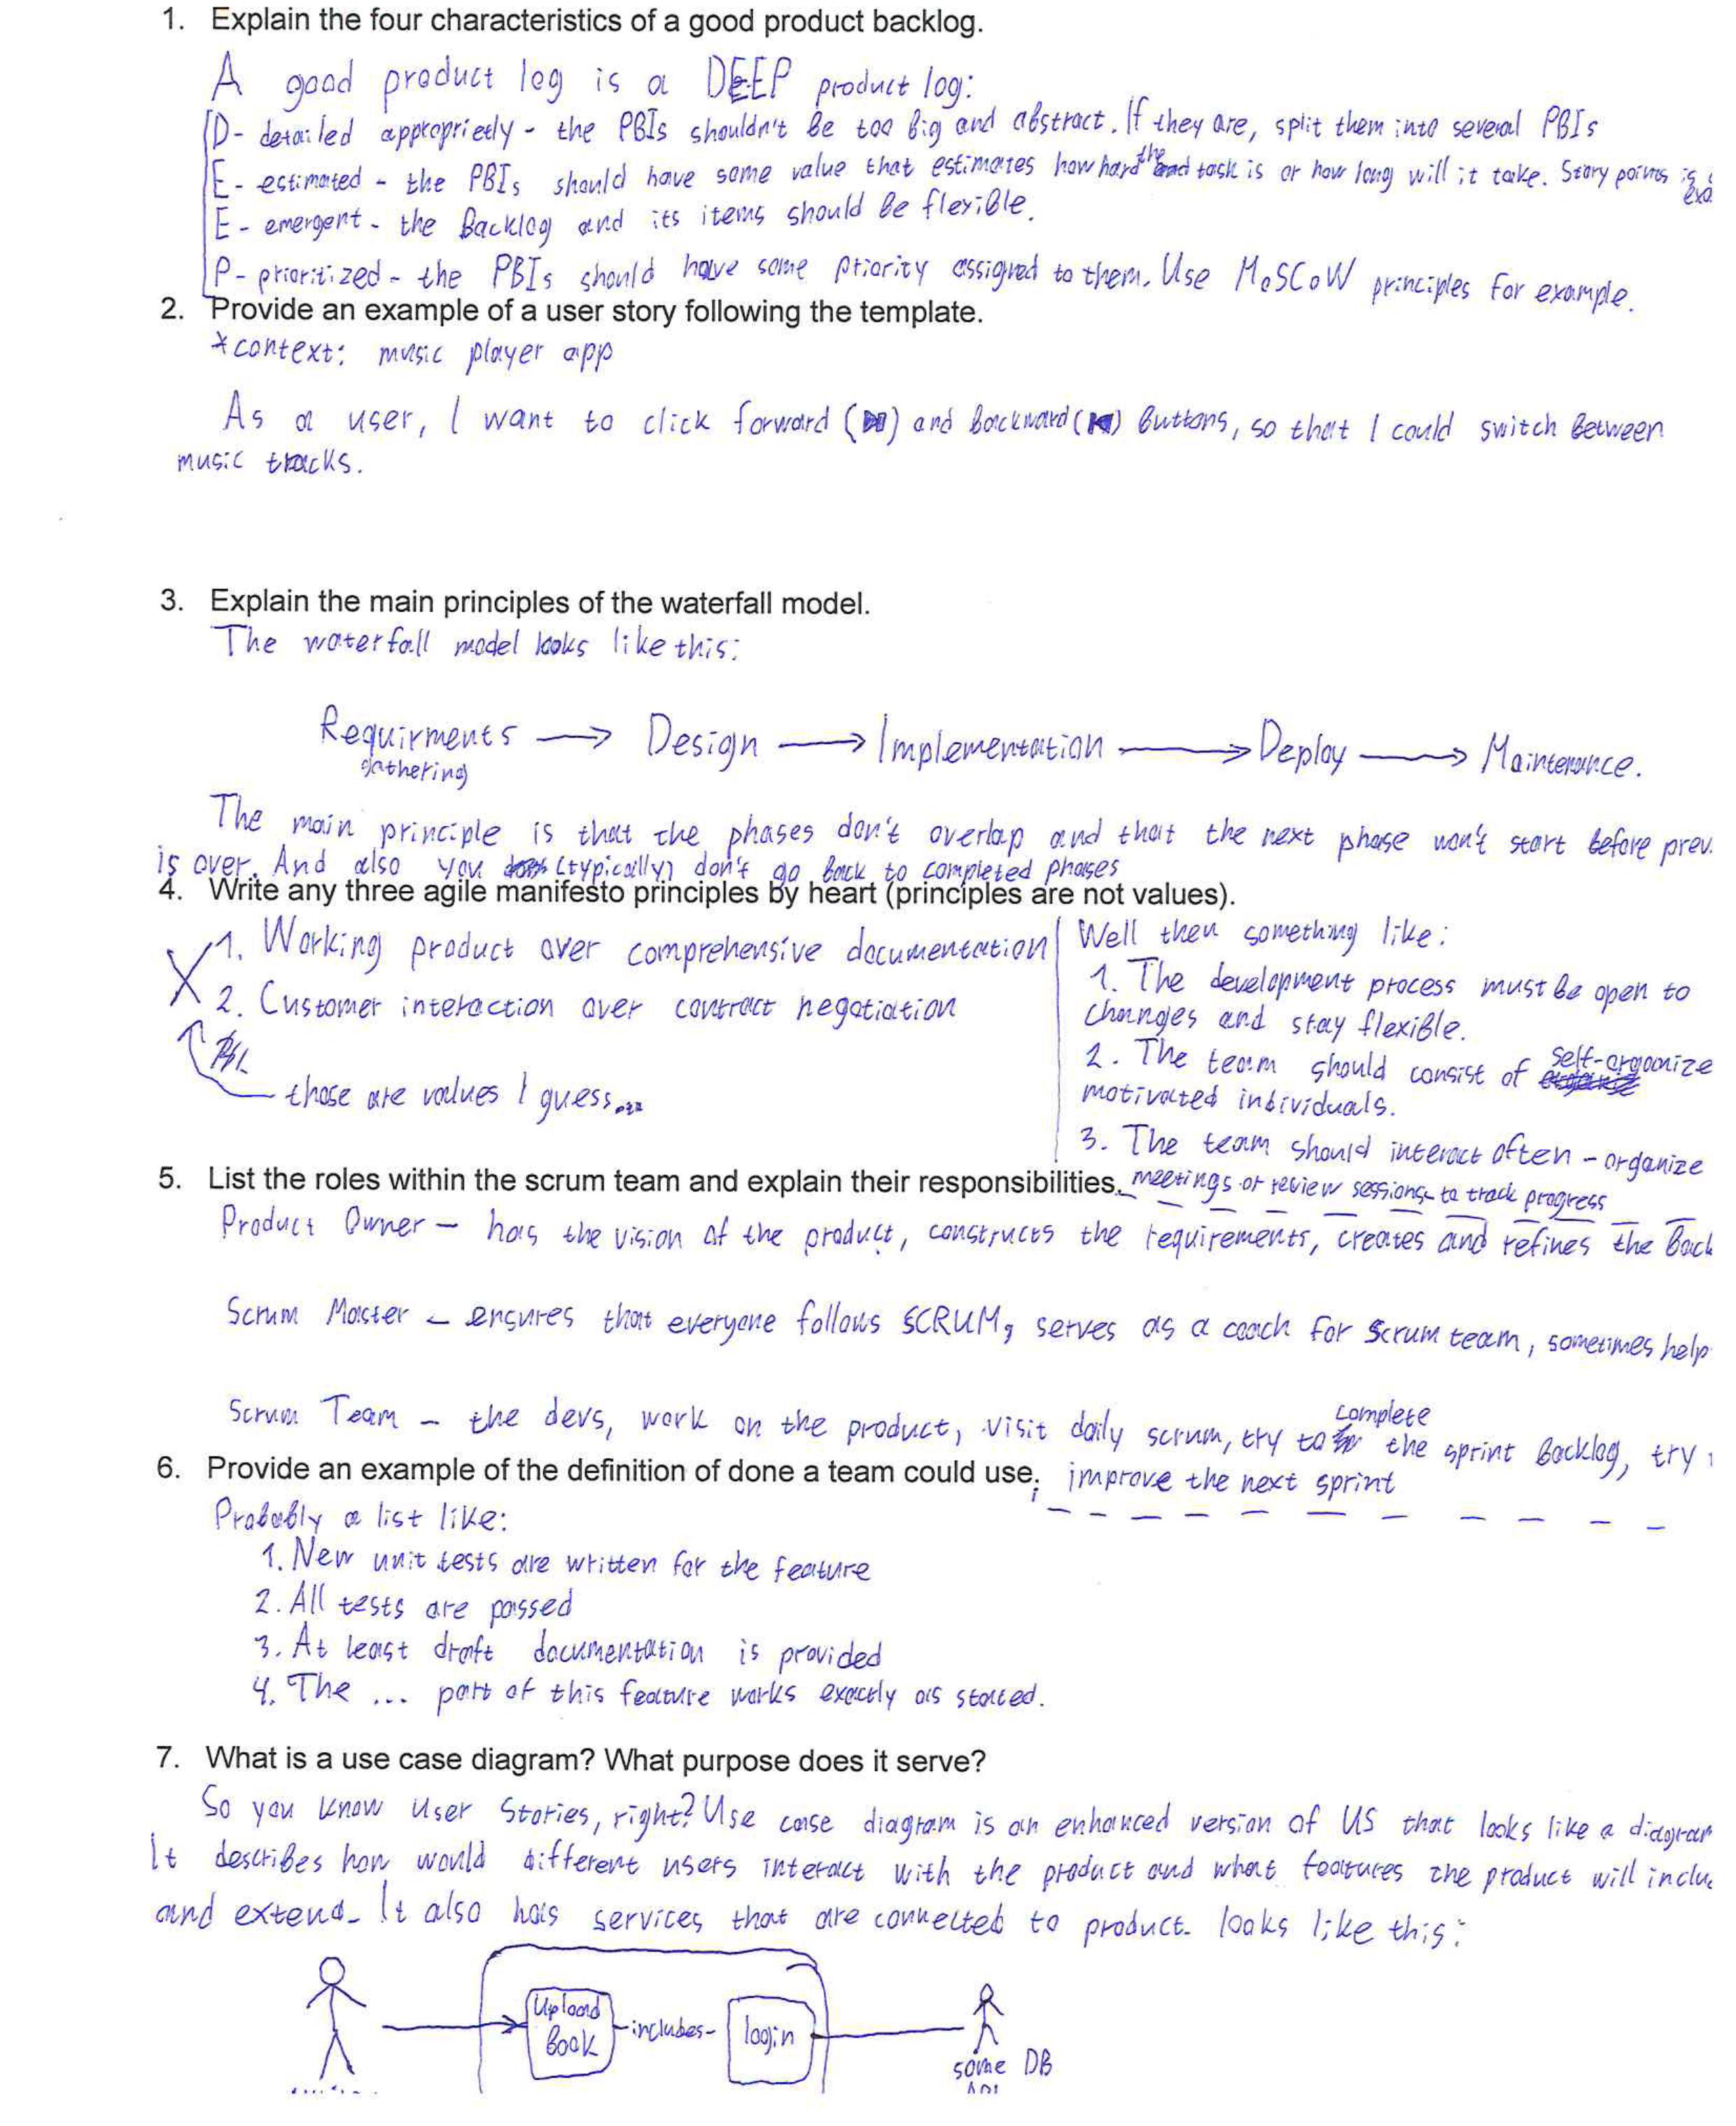 1. Explain the four characteristics of a good product backlog.
A good product log is a DEEP product log:
D - detailed appropriedly - the PBIs shouldn't be too big and abstract. If they are, split them into several PBIs
E - estimated - the PBIs should have some value that estimates how hard the task is or how long will it take. Story points is
E - emergent - the Backlog and its items should be flexible.
P - prioritized - the PBIs should have some priority assigned to them. Use MoSCoW principles for example.
2. Provide an example of a user story following the template.
*context: music player app
As a user, I want to click forward () and backward () buttons, so that I could switch between
music tracks.
3. Explain the main principles of the waterfall model.
The waterfall model looks like this:
Requirments → Design → Implementation → Deploy → Maintenance.
gathering
The main principle is that the phases don't overlap and that the next phase won't start before prev.
is over. And also you (typically) don't go back to completed phases
4. Write any three agile manifesto principles by heart (principles are not values).
1. Working product over comprehensive documentation
2. Customer interaction over contract negotiation
those are values I guess...
Well then something like:
1. The development process must be open to
changes and stay flexible.
2. The team should consist of self-organize
motivated individuals.
3. The team should interact often - organize
meetings or review sessions to track progress
5. List the roles within the scrum team and explain their responsibilities.
Product Owner - has the vision of the product, constructs the requirements, creates and refines the Back
Scrum Master - ensures that everyone follows SCRUM, serves as a coach for Scrum team, sometimes help
Scrum Team - the devs, work on the product, visit daily scrum, try to complete the sprint Backlog, try
improve the next sprint
6. Provide an example of the definition of done a team could use.
Probably a list like:
1. New unit tests are written for the feature
2. All tests are passed
3. At least draft documentation is provided
4. The ... part of this feature works exactly as stated.
7. What is a use case diagram? What purpose does it serve?
So you know User Stories, right? Use case diagram is an enhanced version of US that looks like a diagram
It describes how would different users interact with the product and what features the product will inclu
and extend. It also has services that are connected to product. looks like this:
Upload
Book
-includes-
login
some DB